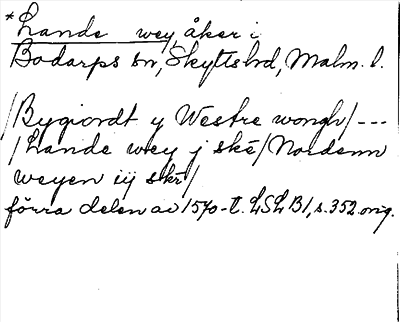 *Lande wey åker i
Bodarps sn, Skytts hd, Malm. l.
/Bygiordt y Westre wongh/ ---
/Lande wey j skē/ Nordenn
weyen iij skē/
förra delen av 1570-t. LSLB1, s. 352 orig.